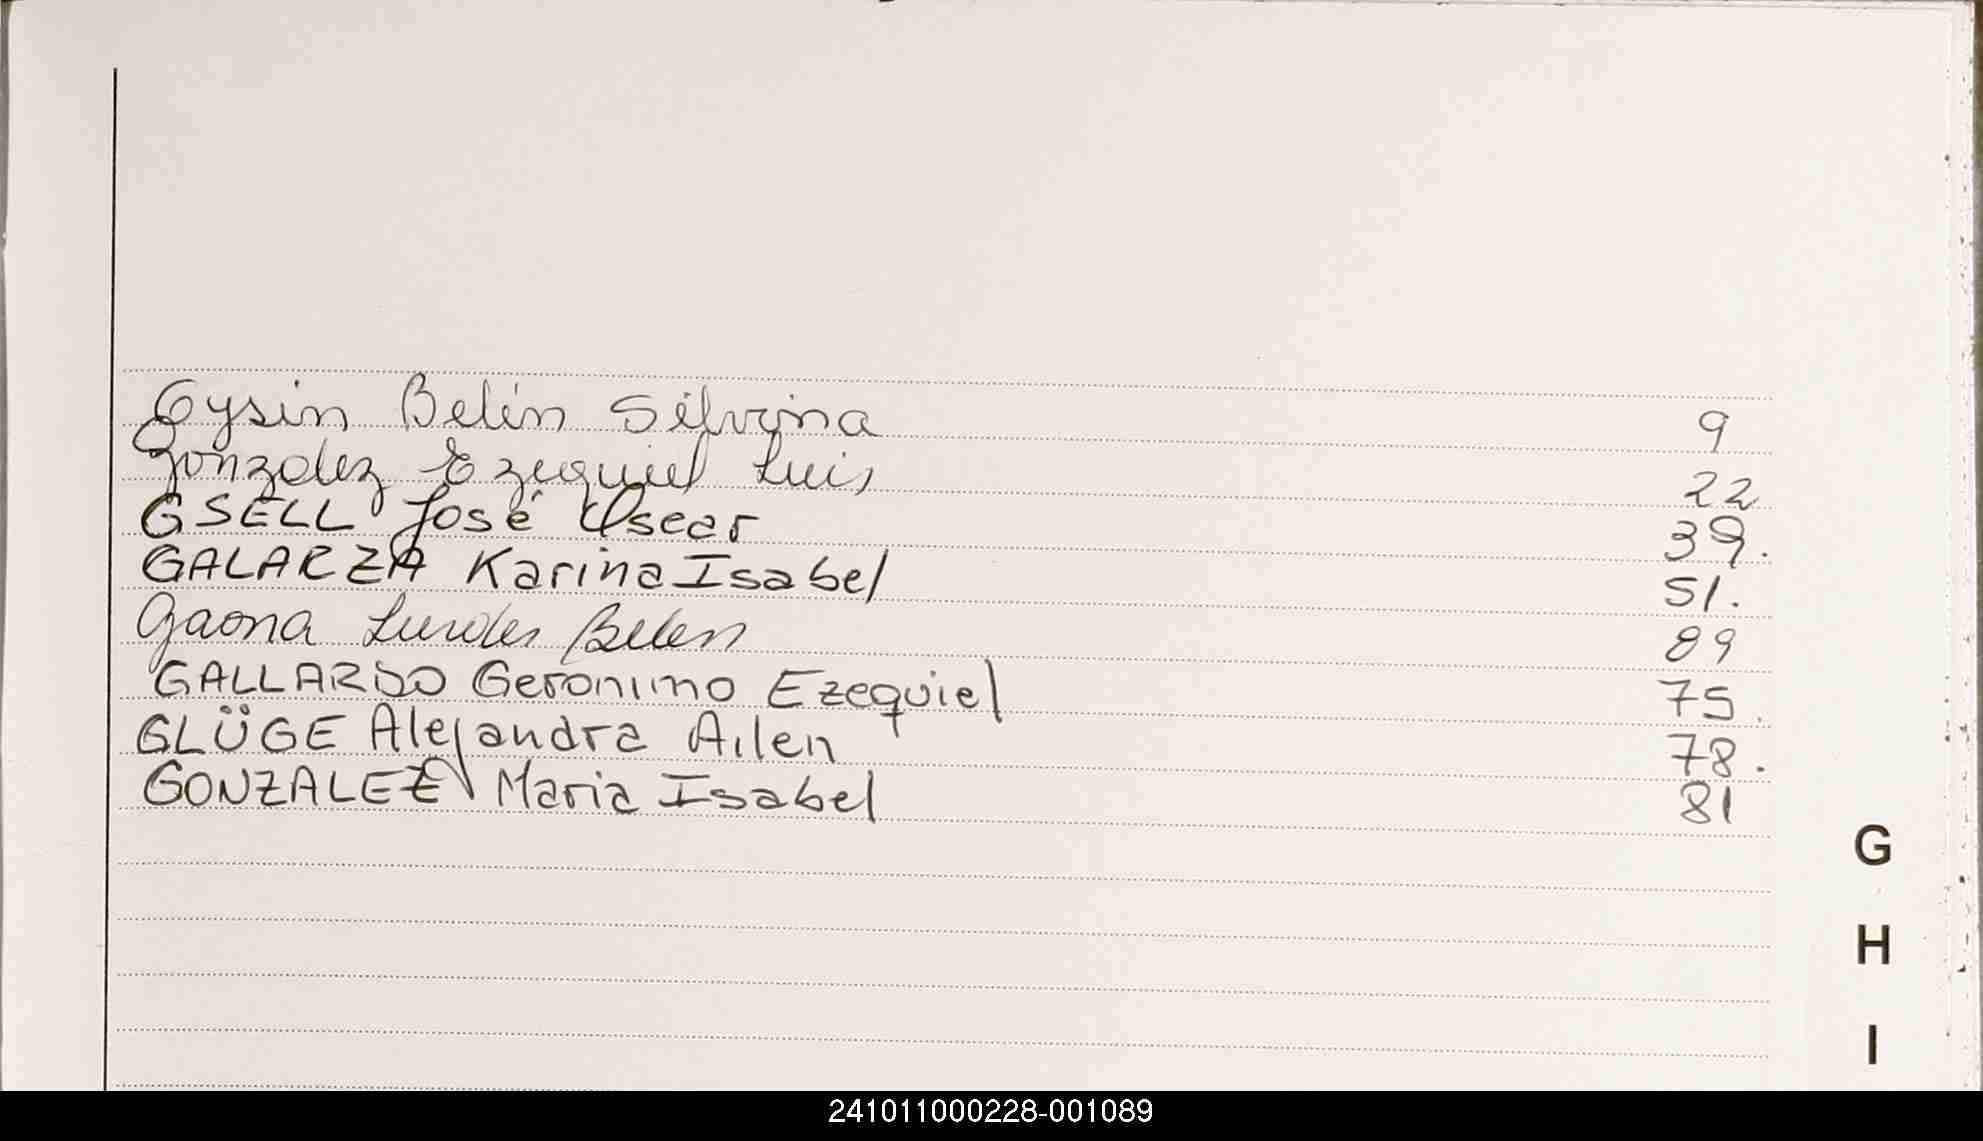 Gysin Belén Silvina 9
Gonzalez Ezequiel Luis 22.
GSELL José Oscar 39.
GALARZA Karina Isabel 51.
Gaona Lurdes Belen 89
GALLARDO Geronimo Ezequiel 75.
GLÜGE Alejandra Ailen 78.
GONZALEZ Maria Isabel 81
G
H
I
241011000228-001089